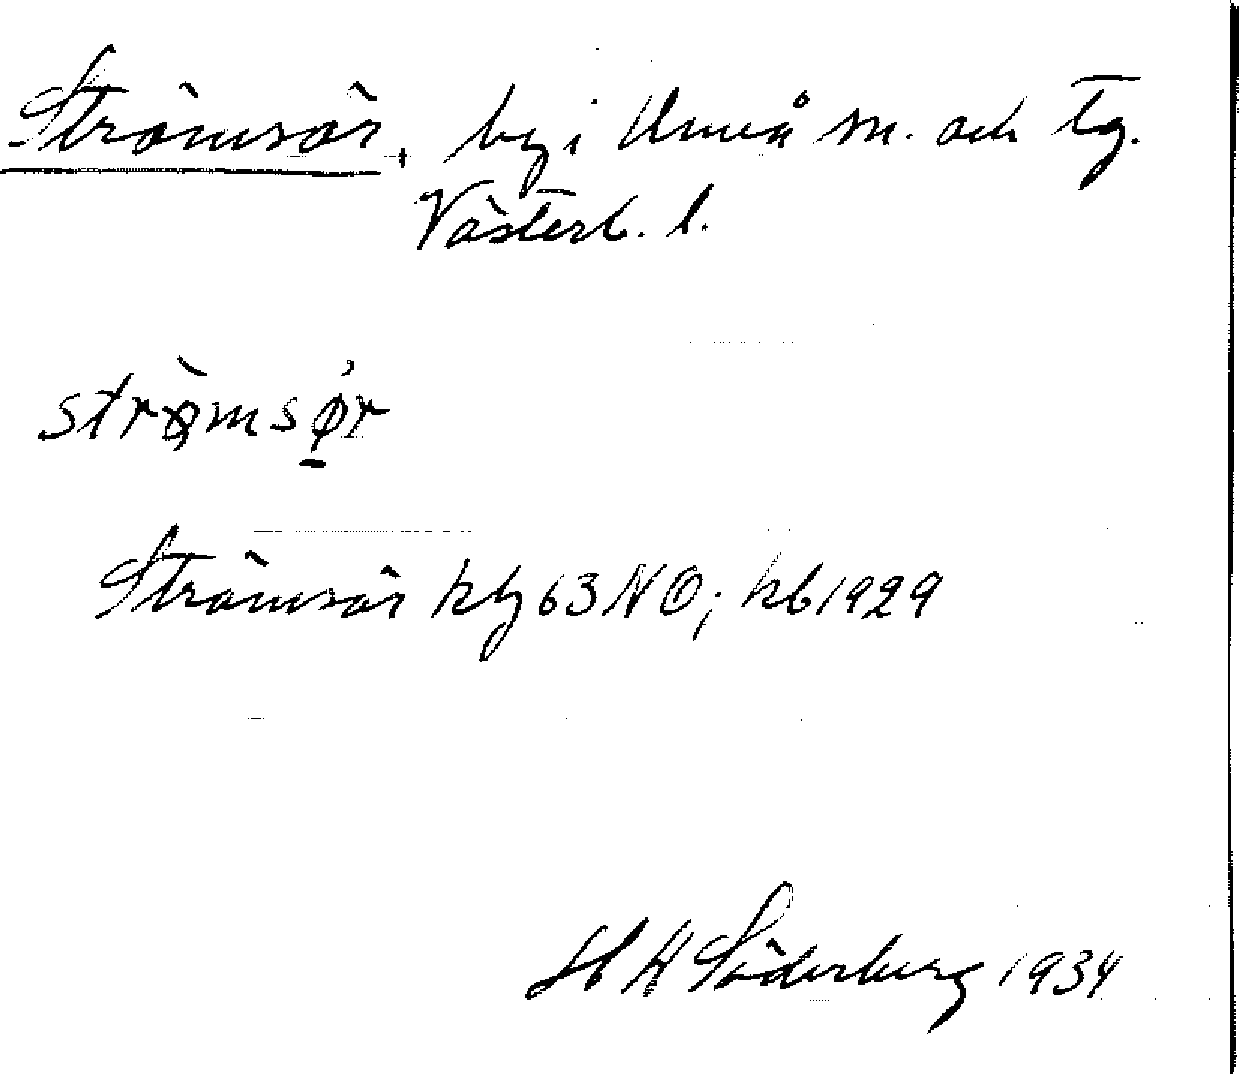 Strömsör, by i Umeå sn. och tg.
Västerb. l.
strö̀msø̨r
Strömsör kbl 63 NO; kb 1929
H H Söderberg 1934